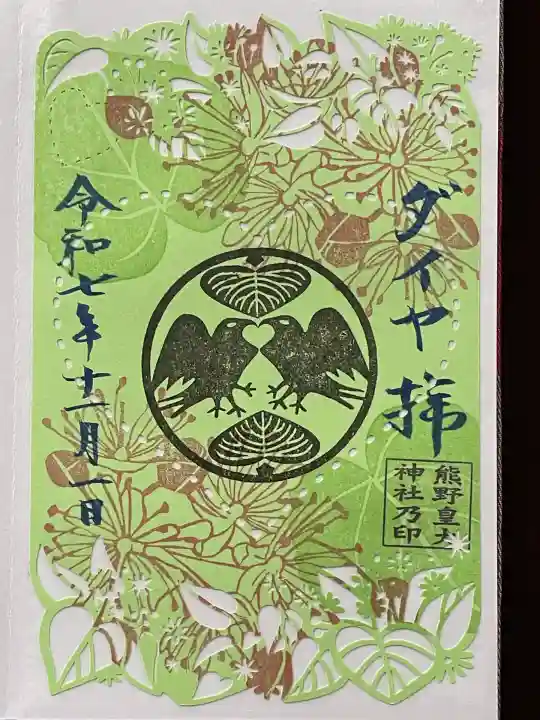 ダイヤ拝
熊野皇大
神社乃印
令和七年十一月一日